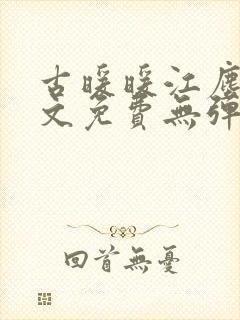 古暖暖江塵
文免費無彈
回首無憂